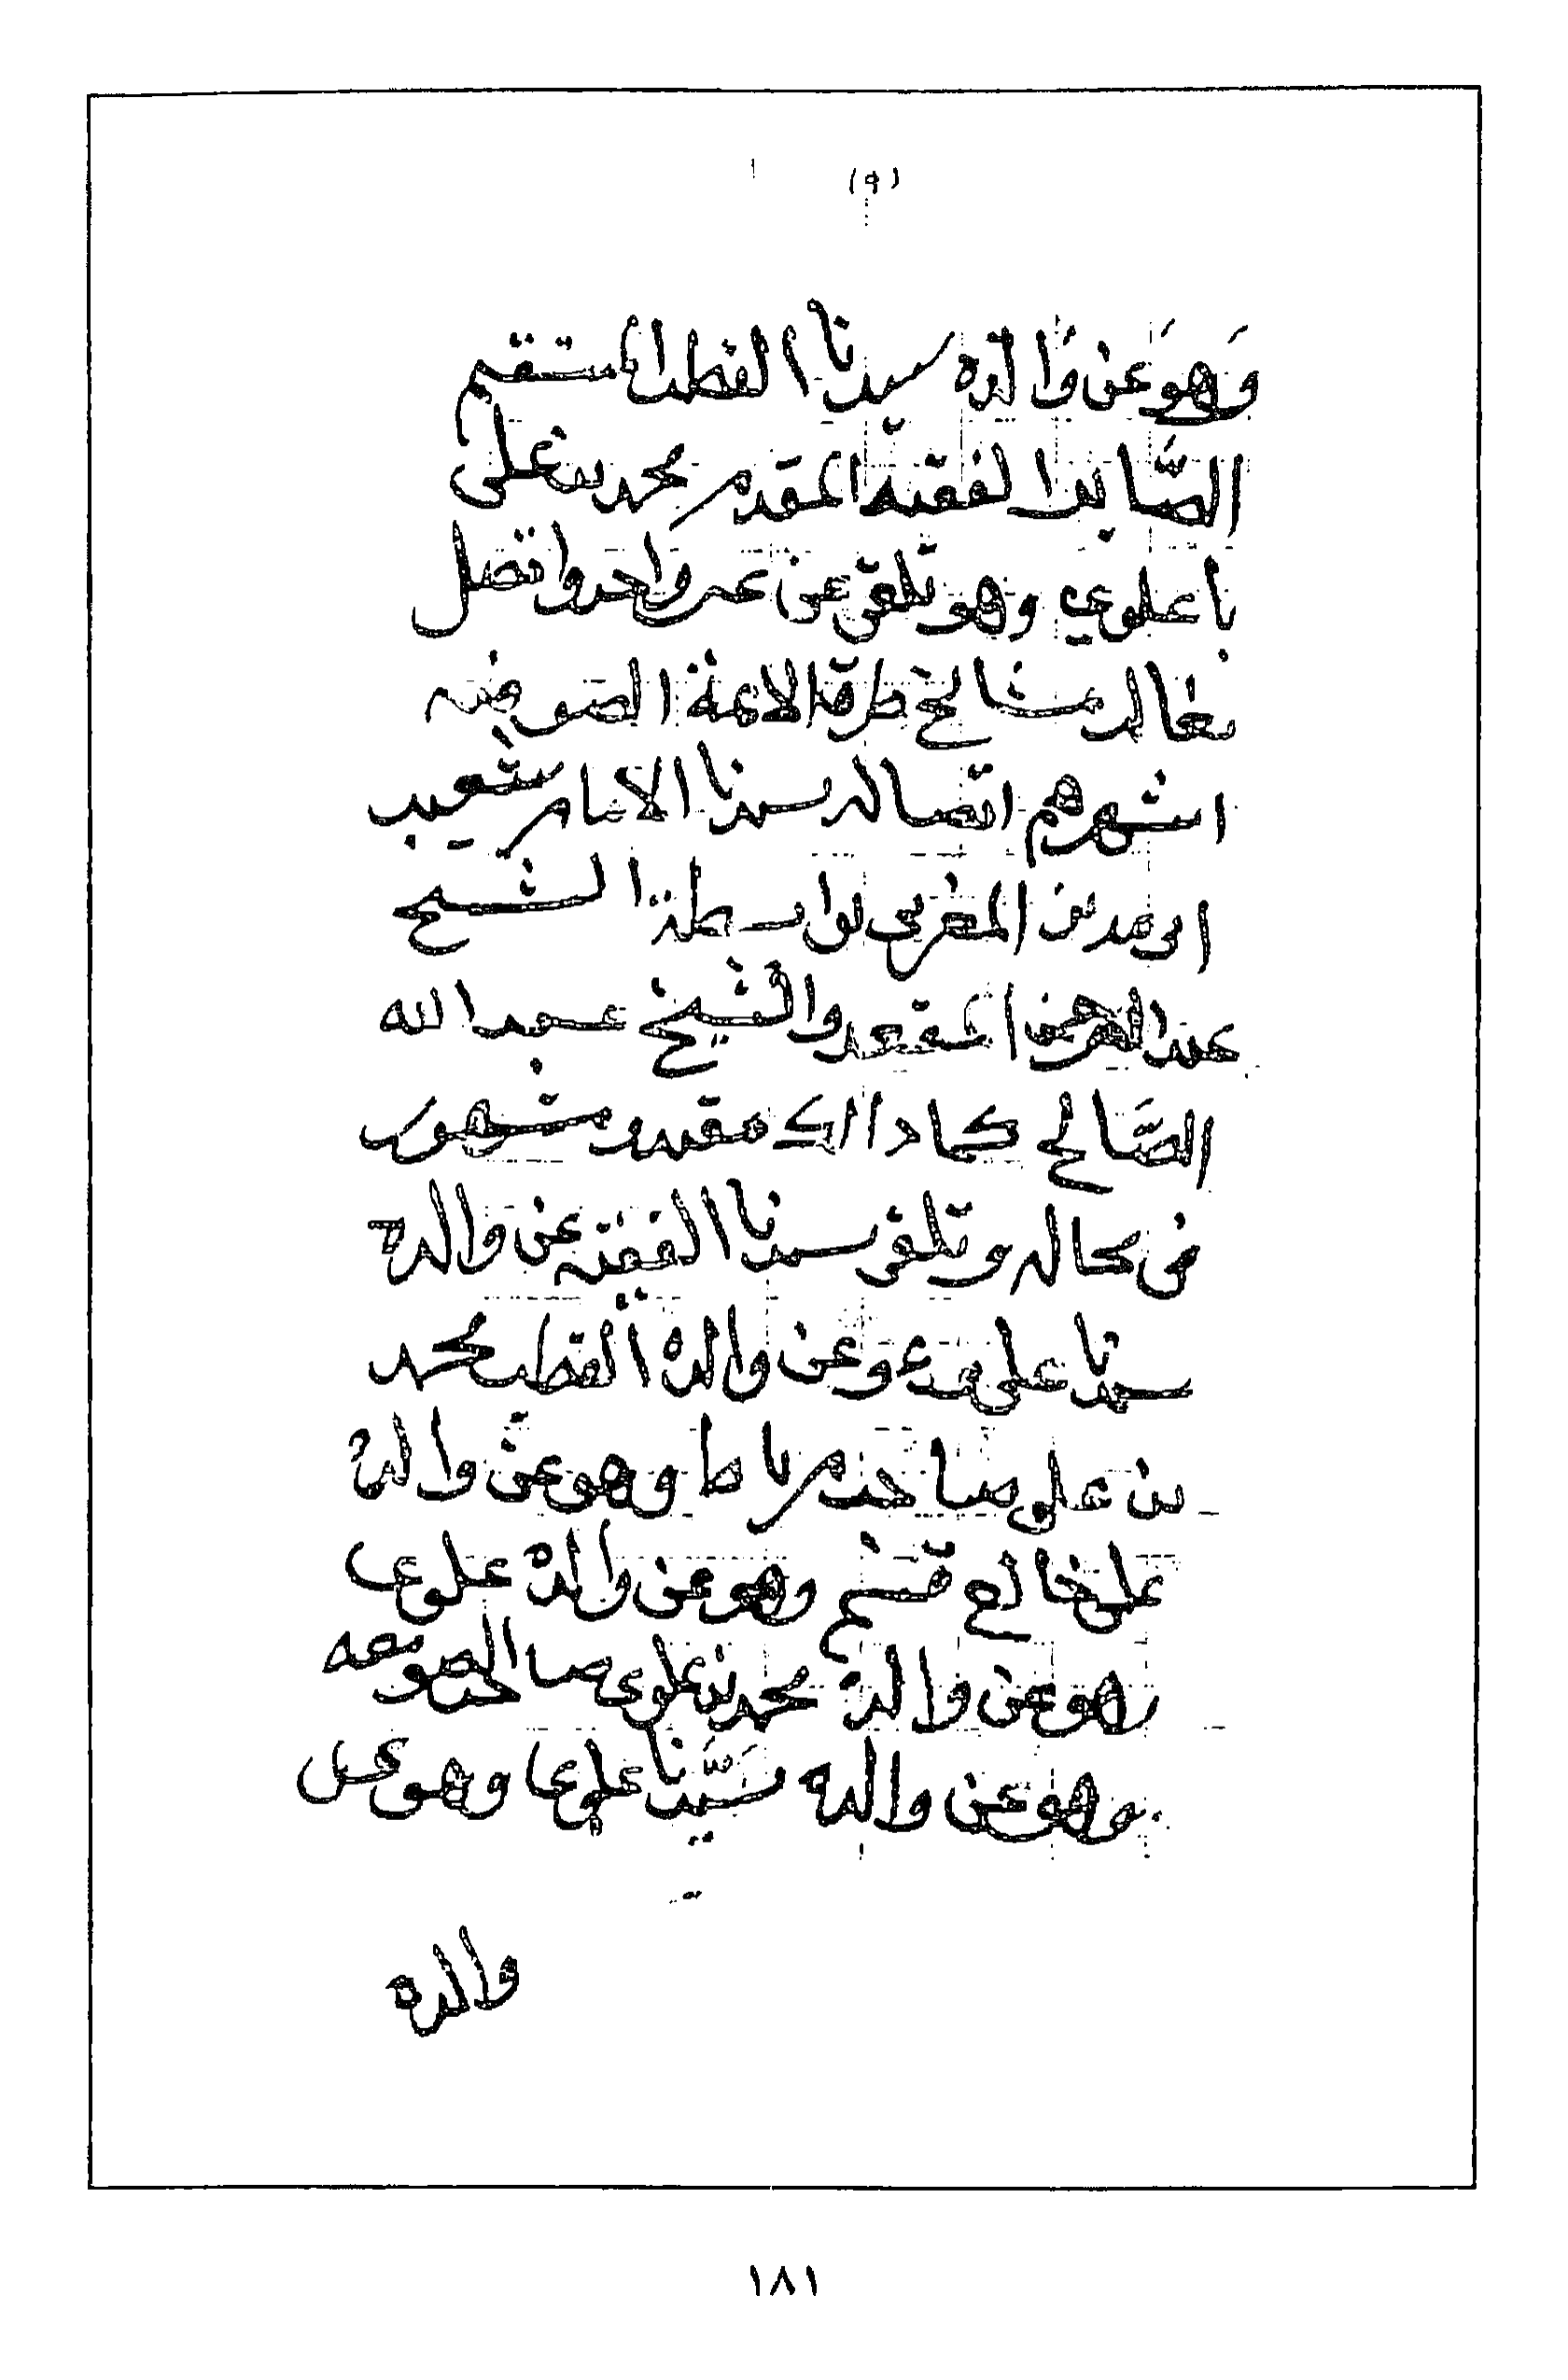 (٩)
وَهوَ عن وَالده سيدنا القطب المستقيم
الصَّابر الفقيه المقدم محمد بن على
باعلوي وهو تلقّى عن غير واحد واتصل
بغالب مشايخ طرق الائمة الصوفيه
اشهرهم اتصاله بسيدنا الامام شعيب
ابو مدين المغربى بواسطة الشيخ
عبد الرحمن المقعد والشيخ عبد الله
الصَّالح كما ذالك مقيد مشهور
فى محاله وتلقى سيدنا الفقيه عن والده
سيدنا على وعن والده القطب محمد
بن على صاحب مرباط وهو عن والده
على خالع قسم وهو عن والده علوي
وهو عن والده محمد بن علوى صاحب الصومعه
وهو عن والده سَيّدنا علوى وهو عن
والده
١٨١